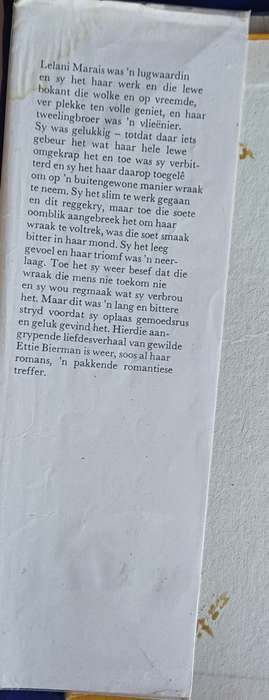 Lelani Marais was 'n lugwaardin
en sy het haar werk en die lewe
bokant die wolke en op vreemde,
ver plekke ten volle geniet, en haar
tweelingbroer was 'n vlieënier.
Sy was gelukkig – totdat daar iets
gebeur het wat haar hele lewe
omgekrap het en toe was sy verbit-
terd en sy het haar daarop toegelê
om op 'n buitengewone manier wraak
te neem. Sy het slim te werk gegaan
en dit reggekry, maar toe die soete
oomblik aangebreek het om haar
wraak te voltrek, was die soet smaak
bitter in haar mond. Sy het leeg
gevoel en haar triomf was 'n neer-
laag. Toe het sy weer besef dat die
wraak die mens nie toekom nie
en sy wou regmaak wat sy verbrou
het. Maar dit was 'n lang en bittere
stryd voordat sy oplaas gemoedsrus
en geluk gevind het. Hierdie aan-
grypende liefdesverhaal van gewilde
Ettie Bierman is weer, soos al haar
romans, 'n pakkende romantiese
treffer.